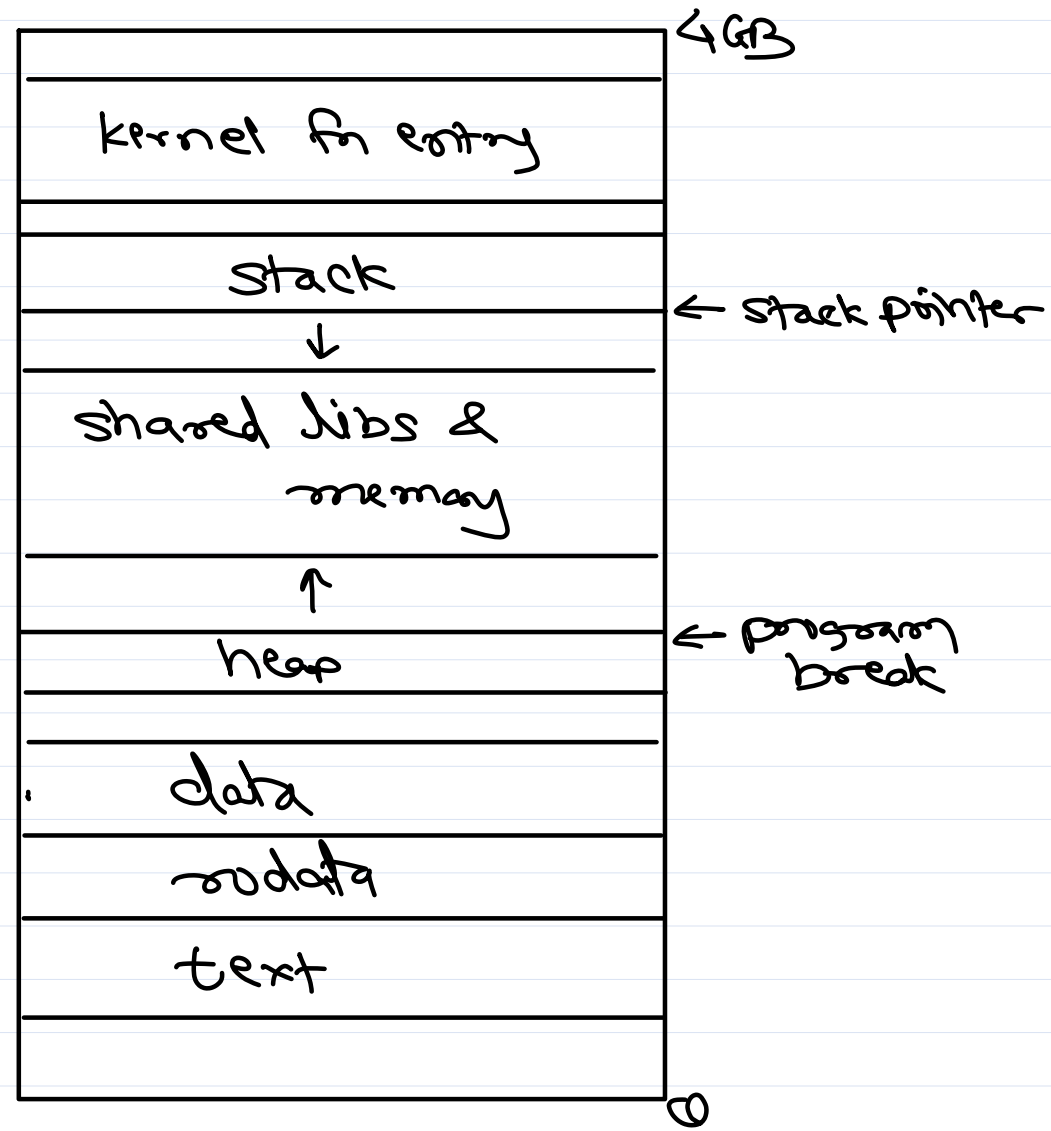 4GB
kernel fn entry
stack
← stack pointer
↓
shared libs &
memory
↑
← program
break
heap
data
rodata
text
0